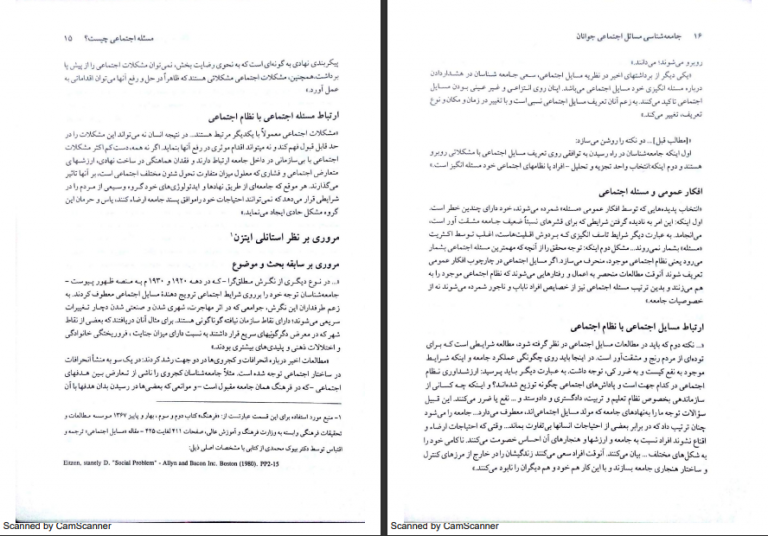 ۱۶ جامعه‌شناسی مسائل اجتماعی جوانان
روبرو می‌شوند؛ می‌دانند.»
«یکی دیگر از برداشتهای اخیر در نظریه مسایل اجتماعی، سعی جامعه شناسان در هشداردادن
درباره مسئله انگیزی خود مسایل اجتماعی می‌باشد. اینان روی انتزاعی و غیر عینی بودن مسایل
اجتماعی تاکید می‌کنند. به زعم آنان تعریف مسایل اجتماعی نسبی است و با تغییر در زمان و مکان و نوع
تعریف، تغییر می‌کند.»
«[مطالب قبل]... دو نکته را روشن می‌سازد:
اول اینکه جامعه‌شناسان در راه رسیدن به توافقی روی تعریف مسایل اجتماعی با مشکلاتی روبرو
هستند و دوم اینکه انتخاب واحد تجزیه و تحلیل -افراد یا نظامهای اجتماعی خود مسئله انگیز است.»
افکار عمومی و مسئله اجتماعی
«انتخاب پدیده‌هایی که توسط افکار عمومی «مسئله» شمرده می‌شوند، خود دارای چندین خطر است.
اول اینکه: این امر به نادیده گرفتن شرایطی که برای قشرهای نسبتاً ضعیف جامعه مشقت آور است،
می‌انجامد. به عبارت دیگر شرایط تاسف انگیزی که بردوش اقلیت‌هاست، اغلب توسط اکثریت
«مسئله» بشمار نمی‌روند... مشکل دوم اینکه: توجه محقق را از آنچه که مهمترین مسئله اجتماعی بشمار
می‌رود یعنی نظام اجتماعی موجود، منحرف می‌سازد. اگر مسایل اجتماعی در چارچوب افکار عمومی
تعریف شوند آنوقت مطالعات منحصر به اعمال و رفتارهایی می‌شوند که نظام اجتماعی موجود را به
هم می‌زنند و بدین ترتیب مسئله اجتماعی نیز از خصایص افراد ناباب و ناجور شمرده می‌شوند نه از
خصوصیات جامعه.»
ارتباط مسایل اجتماعی با نظام اجتماعی
«.. نکته دوم که باید در مطالعات مسایل اجتماعی در نظر گرفته شود، مطالعه شرایطی است که برای
توده‌ای از مردم رنج و مشقت‌آور است. در اینجا باید روی چگونگی عملکرد جامعه و اینکه شرایط
موجود به نفع کیست و به ضرر کی، توجه داشت. به عبارت دیگر باید پرسید: ارزشداوری نظام
اجتماعی در کدام جهت است و پاداش‌های اجتماعی چگونه توزیع شده‌اند؟ و اینکه چه کسانی از
سازماندهی بخصوص نظام تعلیم و تربیت، دادگستری و دادوستد و ... نفع یا ضرر می‌کنند. این قبیل
سؤالات توجه ما را به نهادهای جامعه که مولد مسایل اجتماعی‌اند، معطوف می‌دارد.. جامعه را می‌شود
چنان ترتیب داد که در برابر بعضی از احتیاجات انسانها بی‌تفاوت بماند.. وقتی که احتیاجات ارضاء و
اقناع نشوند افراد نسبت به جامعه و ارزشها و هنجارهای آن احساس خصومت می‌کنند. ناکامی خود را
به شکل‌های مختلف ... بیان می‌کنند. آنوقت افراد سعی می‌کنند زندگیشان را در خارج از مرزهای کنترل
و ساختار هنجاری جامعه بسازند و با این کار هم خود و هم دیگران را نابود می‌کنند.»
Scanned by CamScanner
مسئله اجتماعی چیست؟ ۱۵
پیکربندی نهادی به گونه‌ای است که به نحوی رضایت بخش، نمی‌توان مشکلات اجتماعی را از پیش پا
برداشت. همچنین، مشکلات اجتماعی مشکلاتی هستند که ظاهراً در حل و رفع آنها می‌توان اقداماتی به
عمل آورد.»
ارتباط مسئله اجتماعی با نظام اجتماعی
«مشکلات اجتماعی معمولاً با یکدیگر مرتبط هستند... در نتیجه انسان نه می‌تواند این مشکلات را در
حد قابل قبول فهم کند و نه میتواند اقدام موثری در رفع آنها بنماید. اگر نه همه، دست کم اکثر مشکلات
اجتماعی با بی‌سازمانی در داخل جامعه ارتباط دارند و فقدان هماهنگی در ساخت نهادی، ارزشهای
متعارض اجتماعی و فشاری که معلول میزان متفاوت تحول شئون مختلف اجتماعی است، بر آنها تاثیر
می‌گذارند. هر موقع که جامعه‌ای از طریق نهادها و ایدئولوژی‌های خود گروه وسیعی از مردم را در
شرایطی قرار می‌دهد که نمی‌توانند احتیاجات خود را موافق پسند جامعه ارضاء کنند، یاس و حرمان این
گروه مشکل حادی ایجاد می‌نماید.»
مروری بر نظر استانلی ایتزن۱
مروری بر سابقه بحث و موضوع
«.. در نوع دیگری از نگرش مطلق‌گرا - که در دهه ۱۹۲۰ و ۱۹۳۰ م به منصه ظهور پیوست -
جامعه‌شناسان توجه خود را برروی شرایط اجتماعی ترویج دهندهٔ مسایل اجتماعی معطوف کردند. به
زعم طرفداران این نگرش، جوامعی که در اثر مهاجرت، شهری شدن و صنعتی شدن دچار تغییرات
سریعی می‌شوند؛ دارای نقاط سازمان نیافته گوناگونی هستند. برای مثال آنان دریافتند که بعضی از نقاط
شهر که در معرض دگرگونیهای سریع قرار داشتند به نسبت دارای میزان جنایت، فروریختگی خانوادگی
و اختلالات ذهنی و پلیدی‌های بیشتری بودند.»
«مطالعات اخیر درباره انحرافات و کجروی‌ها در دو جهت رشد کردند: در یک سو به منشأ انحرافات
در ساختار اجتماعی توجه شده است. مثلاً جامعه‌شناسان کجروی را ناشی از تعارض بین هدفهای
اجتماعی -که در فرهنگ همان جامعه مقبول است- و موانعی که بعضی‌ها در رسیدن بدان هدفها با آن
۱- منبع مورد استفاده برای این قسمت عبارتست از: «فرهنگ» کتاب دوم و سوم، بهار و پاییز ۱۳۶۷ موسسه مطالعات و
تحقیقات فرهنگی وابسته به وزارت فرهنگ و آموزش عالی، صفحات ۴۱۱ لغایت ۴۲۵ - مقاله «مسایل اجتماعی» ترجمه و
اقتباس توسط دکتر بیوک محمدی از کتابی با مشخصات اصلی ذیل:
Eitzen, stanely D. "Social Problem" - Allyn and Bacon Inc. Boston (1980). PP2-15
Scanned by CamScanner